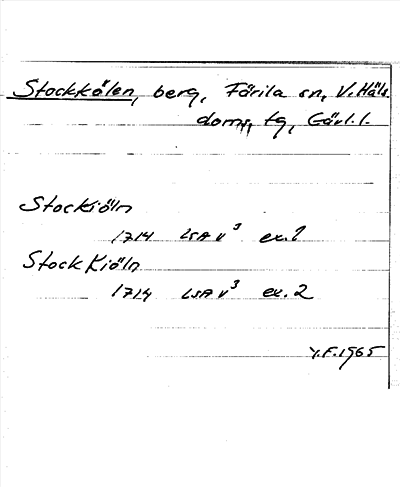 Stockkölen, berg, Färila sn, V. Häls.
doms, tg, Gävl. l.
Stockiöln
1714 LSA V³ ex. 1
Stock Kiöln
1714 LSA V³ ex. 2
Y.F. 1965